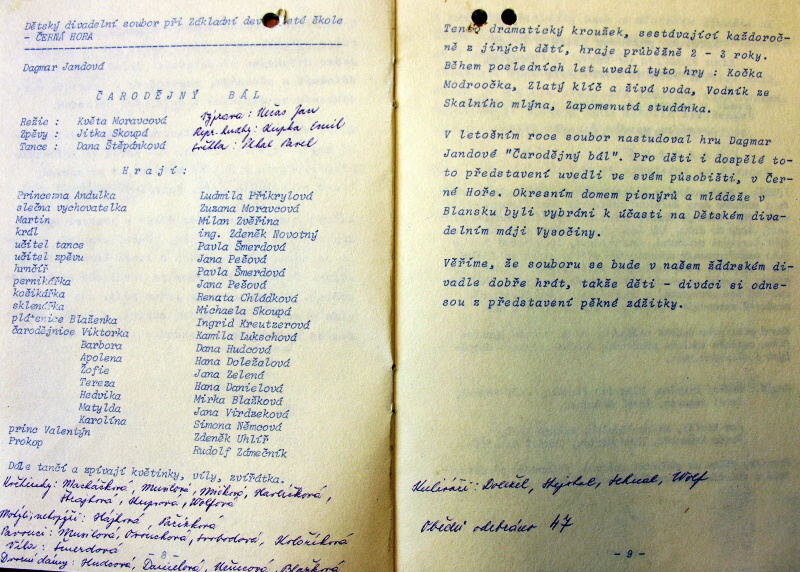 Dětský divadelní soubor při Základní devítileté škole
- ČERNÁ HORA
Dagmar Jandová
ČARODĚJNÝ BÁL
Režie : Květa Moravcová
Zpěvy : Jitka Skoupá
Tance : Dana Štěpánková
Výprava : Nečas Jan
Repr. hudby : Kupka Emil
Světla : Pavel
Hrají :
Princezna Andulka Ludmila Přikrylová
slečna vychovatelka Zuzana Moravcová
Martin Milan Zvěřina
král ing. Zdeněk Novotný
učitel tance Pavla Šmerdová
učitel zpěvu Jana Pešová
hrnčíř Pavla Šmerdová
pernikářka Jana Pešová
košíkářka Renata Chládková
sklenářka Michaela Skoupá
plátenice Blaženka Ingrid Kreutzerová
čarodějnice Viktorka Kamila Lukschová
Barbora Dana Hudcová
Apolena Hana Doležalová
Žofie Jana Zelená
Tereza Hana Danielová
Hedvika Mirka Blažková
Matylda Jana Virdzeková
Karolína Simona Němcová
princ Valentýn Zdeněk Uhlíř
Prokop Rudolf Zámečník
Dále tančí a zpívají květinky, víly, zvířátka.
Květinky : Macháčková, Musilová, Mičková, Havlíčková,
Hrajbová, Kuprova, Wolfová
Motýli, netopýři : Hájková, Pařízková
Pavouci : Musilová, Svobodová, Kolaříková
Víla : Šmerdová
- 8 -
Dvorní dámy : Hudcová, Danielová, Němcová, Blažková
Tento dramatický kroužek, sestávající každoroč-
ně z jiných dětí, hraje průběžně 2 - 3 roky.
Během posledních let uvedl tyto hry : Kočka
Modroočka, Zlatý klíč a živá voda, Vodník ze
Skalního mlýna, Zapomenutá studánka.
V letošním roce soubor nastudoval hru Dagmar
Jandové "Čarodějný bál". Pro děti i dospělé to-
to představení uvedli ve svém působišti, v Čer-
né Hoře. Okresním domem pionýrů a mládeže v
Blansku byli vybráni k účasti na Dětském diva-
delním máji Vysočiny.
Věříme, že souboru se bude v našem žďárském di-
vadle dobře hrát, takže děti - diváci si odne-
sou z představení pěkné zážitky.
Kulisáři : Doležel, Sehnal, Wolf
Obědů odebráno 47
- 9 -